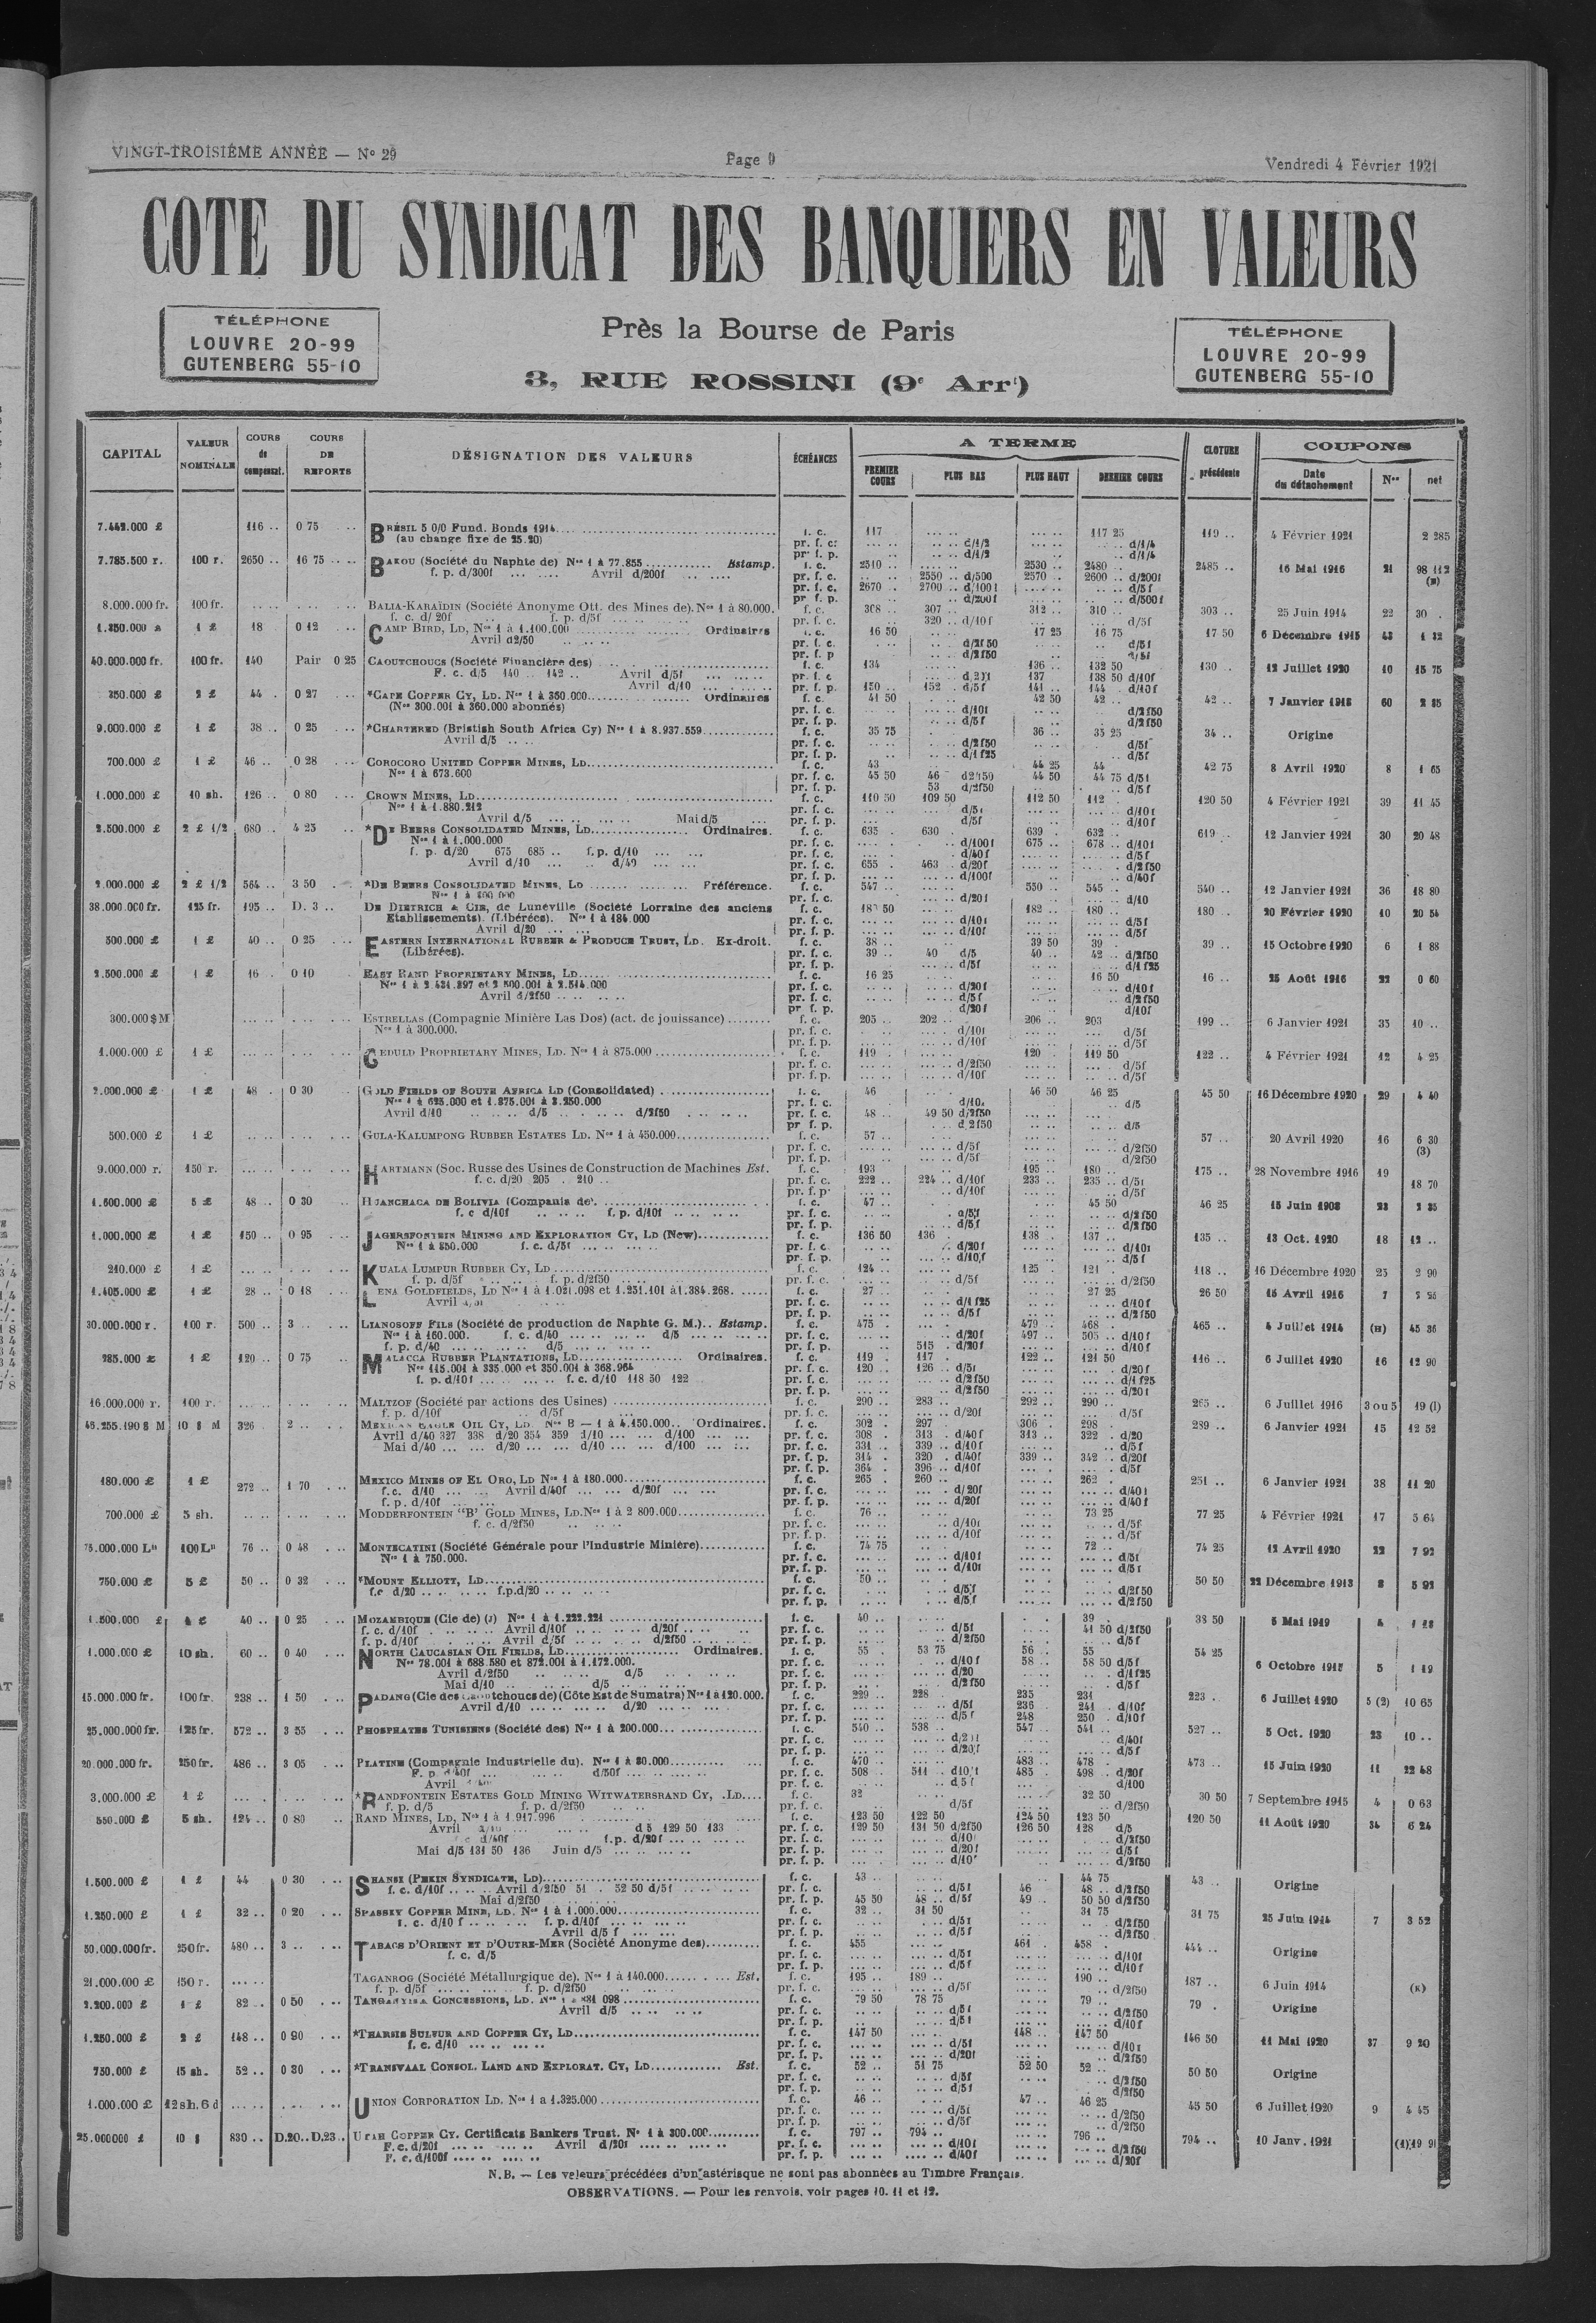 VINGT-TROISIÈME ANNÉE — N° 29
Page 9
Vendredi 4 Février 1921
COTE DU SYNDICAT DES BANQUIERS EN VALEURS
TÉLÉPHONE
LOUVRE 20-99
GUTENBERG 55-10
Près la Bourse de Paris
3, RUE ROSSINI (9e Arrt)
TÉLÉPHONE
LOUVRE 20-99
GUTENBERG 55-10
CAPITAL VALEUR NOMINALE COURS de compensat. COURS DE REPORTS DÉSIGNATION DES VALEURS ÉCHÉANCES A TERME PREMIER COURS PLUS BAS PLUS HAUT DERNIER COURS CLOTURE précédente COUPONS Date du détachement Nos net
7.442.000 £ 116 .. 0 75 BRÉSIL 5 0/0 Fund. Bonds 1914 f. c. 117 117 25 119 .. 4 Février 1921 2 285
(au change fixe de 25.20) pr. f. c. d/1/2 d/1/4
7.785.500 r. 100 r. 2650 .. 16 75 BAKOU (Société du Naphte de) Nos 1 à 77.855 Estamp. f. c. 2510 .. 2530 .. 2480 .. 2485 .. 16 Mai 1916 21 98 112
f. p. d/300f Avril d/200f pr. f. c. 2550 .. d/500 2570 .. 2600 .. d/200f
8.000.000 fr. 100 fr. BALIA-KARAÏDIN (Société Anonyme Ott. des Mines de). Nos 1 à 80.000. f. c. 308 .. 307 .. 312 .. 310 .. 303 .. 25 Juin 1914 22 30 .
f. c. d/20f f. p. d/5f pr. f. c. 320 .. d/10f d/5f
1 £ 18 0 12 CAMP BIRD, LD, Nos 1 à 1.100.000 Ordinaires f. c. 16 50 17 25 16 75 17 50 6 Décembre 1915 43 1 32
Avril d2/50
40.000.000 fr. 100 fr. 140 Pair 0 25 CAOUTCHOUCS (Société Financière des) f. c. 134 136 .. 132 50 130 .. 12 Juillet 1920 10 15 75
F. c. d/5 140 .. 142 .. Avril d/5f 137 138 50 d/10f
Avril d/10 pr. f. p. 150 .. 152 . d/5f 141 .. 144 . d/10f
350.000 £ 2 £ 44 . 0 27 *CAPE COPPER CY, LD. Nos 1 à 360.000 Ordinaires f. c. 41 50 42 50 42 .. 42 .. 7 Janvier 1918 60 2 85
(Nos 300.001 à 360.000 abonnés) pr. f. c. d/10f d/2f50
9.000.000 £ 1 £ 38 .. 0 25 *CHARTERED (Bristish South Africa Cy) Nos 1 à 8.937.559 f. c. 35 75 36 .. 35 25 34 .. Origine
Avril d/5 pr. f. c. d/2f50 d/5f
700.000 £ 1 £ 46 .. 0 28 COROCORO UNITED COPPER MINES, LD f. c. 43 44 25 44 42 75 8 Avril 1920 8 1 65
Nos 1 à 673.600 pr. f. c. 45 50 46 d2f50 44 50 44 75 d/5f
1.000.000 £ 10 sh. 126 .. 0 80 CROWN MINES, LD f. c. 110 50 109 50 112 50 112 . 120 50 4 Février 1921 39 11 45
Nos 1 à 1.880.212
Avril d/5 Mai d/5
2.500.000 £ 2 £ 1/2 680 .. 4 25 *DE BEERS CONSOLIDATED MINES, LD Ordinaires. f. c. 635 . 630 . 639 . 632 .. 619 .. 12 Janvier 1921 30 20 48
Nos 1 à 1.000.000 pr. f. c. d/100f 675 .. 678 .. d/10f
f. p. d/20 675 685 .. f.p. d/10 d/40f d/5f
Avril d/10 d/40 655 . 463 .. d/20f d/2f50
2.000.000 £ 2 £ 1/2 564 .. 3 50 *DE BEERS CONSOLIDATED MINES, LD Préférence. f. c. 547 550 .. 545 .. 540 .. 12 Janvier 1921 36 18 80
38.000.000 fr. 125 fr. 195 .. D. 3 .. DE DIETRICH & CIE, de Lunéville (Société Lorraine des anciens f. c. 182 .. 180 .. 180 .. 20 Février 1920 10 20 54
Etablissements). (Libérées). Nos 1 à 184.000 pr. f. c. d/10f d/5f
Avril d/20
500.000 £ 1 £ 40 .. 0 25 EASTERN INTERNATIONAL RUBBER & PRODUCE TRUST, LD. Ex-droit. f. c. 38 .. 39 50 39 39 .. 15 Octobre 1920 6 1 88
(Libérées). pr. f. c. 39 .. 40 d/5 40 .. 42 .. d/2f50
2.500.000 £ 1 £ 16 .. 0 10 EAST RAND PROPRIETARY MINES, LD f. c. 16 25 16 50 16 .. 25 Août 1916 22 0 60
Nos 1 à 2.431.897 et 2.500.001 à 2.514.000 d/20f d/10f
Avril d/2f50 d/5f d/2f50
300.000 $ M ESTRELLAS (Compagnie Minière Las Dos) (act. de jouissance) f. c. 205 .. 202 .. 206 .. 203 199 .. 6 Janvier 1921 35 10 ..
Nos 1 à 300.000. pr. f. c. d/10f d/5f
1.000.000 £ 1 £ GEDULD PROPRIETARY MINES, LD. Nos 1 à 875.000 f. c. 119 . 120 . 119 50 122 .. 4 Février 1921 12 4 25
pr. f. c. d/2f50 d/5f
pr. f. p. d/10f d/5f
2.000.000 £ 1 £ 48 . 0 30 GOLD FIELDS OF SOUTH AFRICA LD (Consolidated) f. c. 46 46 50 46 25 45 50 16 Décembre 1920 29 4 40
Nos 1 à 625.000 et 1.875.001 à 3.250.000 d/5
Avril d/10 d/5 d/2f50 pr. f. c. 48 .. 49 50 d/2f50
500.000 £ 1 £ GULA-KALUMPONG RUBBER ESTATES LD. Nos 1 à 450.000 f. c. 57 .. 57 .. 20 Avril 1920 16 6 30
pr. f. c. d/5f d/2f50 (3)
9.000.000 r. 150 r. HARTMANN (Soc. Russe des Usines de Construction de Machines Est. f. c. 193 195 .. 180 .. 175 .. 28 Novembre 1916 19
f. c. d/20 205 . 210 .. pr. f. c. 222 .. 224 .. d/10f 233 .. 235 .. d/5f 18 70
1.600.000 £ 5 £ 48 .. 0 30 HUANCHACA DE BOLIVIA (Compania de) f. c. 47 .. 45 50 46 25 15 Juin 1908 23 2 35
f. c d/10f f. p. d/10f
1.000.000 £ 1 £ 150 .. 0 95 JAGERSFONTEIN MINING AND EXPLORATION CY, LD (New) f. c. 136 50 136 . 138 . 137 .. 135 .. 13 Oct. 1920 18 12 ..
Nos 1 à 850.000 f. c. d/5f pr. f. c. d/20f d/10f
210.000 £ 1 £ KUALA LUMPUR RUBBER CY, LD f. c. 124 .. 125 . 121 . 118 .. 16 Décembre 1920 25 2 90
f. p. d/5f f. p. d/2f50 pr. f. c. d/5f d/2f50
1.405.000 £ 1 £ 28 .. 0 18 LENA GOLDFIELDS, LD Nos 1 à 1.021.098 et 1.251.101 à 1.384.268. f. c. 27 .. 27 25 26 50 15 Avril 1916 7
pr. f. c. d/1f25 d/10f
30.000.000 r. 100 r. 500 .. 3 .. LIANOSOFF FILS (Société de production de Naphte G. M.) Estamp. f. c. 475 .. 479 .. 468 .. 465 .. 4 Juillet 1914 (H) 45 36
Nos 1 à 160.000. f. c. d/40 d/5 pr. f. c. d/20f 497 .. 505 .. d/10f
f. p. d/40 d/5 pr. f. p. 515 . d/20f d/10f
285.000 £ 1 £ 120 .. 0 75 MALACCA RUBBER PLANTATIONS, LD Ordinaires. f. c. 119 . 117 122 .. 121 50 116 .. 6 Juillet 1920 16 12 90
Nos 115.001 à 335.000 et 350.001 à 368.964 pr. f. c. 120 .. 126 .. d/5f d/20f
f. p. d/10f f. c. d/10 118 50 122 d/2f50 d/1f25
16.000.000 r. 100 r. MALTZOF (Société par actions des Usines) f. c. 290 .. 283 .. 292 .. 290 .. 265 .. 6 Juillet 1916 3 ou 5 19 (l)
f. p. d/10f d/5f pr. f. c. d/20f d/5f
46.255.190 $ M 10 $ M 326 2 .. MEXICAN EAGLE OIL CY, LD. Nos B — 1 à 4.150.000 Ordinaires. f. c. 302 . 297 306 . 298 289 .. 6 Janvier 1921 15 12 52
Avril d/40 327 338 d/20 354 359 d/10 d/100 pr. f. c. 308 . 313 . d/40f 313 .. 322 . d/20
Mai d/40 d/20 d/10 d/100 pr. f. c. 331 .. 339 .. d/10f d/5f
pr. f. p. 314 . 320 . d/40f 339 .. 342 .. d/20f
pr. f. p. 364 . 396 .. d/10f d/5f
180.000 £ 1 £ 272 .. 1 70 MEXICO MINES OF EL ORO, LD Nos 1 à 180.000 f. c. 265 . 260 .. 262 . 251 .. 6 Janvier 1921 38 11 20
f.c. d/10 Avril d/40f d/20f pr. f. c. d/20f d/40f
f. p. d/10f pr. f. p. d/20f d/40f
700.000 £ 5 sh. MODDERFONTEIN "B" GOLD MINES, LD. Nos 1 à 2 800.000 f. c. 76 .. 73 25 77 25 4 Février 1921 17 5 64
f. c. d/2f50 pr. f. c. d/10f d/5f
75.000.000 Ls 100 Ls 76 .. 0 48 MONTECATINI (Société Générale pour l'Industrie Minière) f. c. 74 75 72 .. 74 25 12 Avril 1920 22 7 92
Nos 1 à 750.000. pr. f. c. d/10f d/5f
750.000 £ 5 £ 50 .. 0 32 *MOUNT ELLIOTT, LD f. c. 50 .. 50 50 22 Décembre 1913 8 5 92
f.c d/20 f.p.d/20 pr. f. c. d/5f d/2f50
1.500.000 £ 40 .. 0 25 MOZAMBIQUE (Cie de) (J) Nos 1 à 1.222.221 f. c. 40 .. 39 . 38 50 5 Mai 1919 4
f. c. d/10f Avril d/10f d/20f pr. f. c. d/5f 41 50 d/2f50
f. p. d/10f Avril d/5f d/2f50 pr. f. p. d/2f50 d/5f
1.000.000 £ 10 sh. 60 .. 0 40 NORTH CAUCASIAN OIL FIELDS, LD Ordinaires. f. c. 55 . 53 75 56 . 55 54 25
Nos 78.001 à 688.580 et 872.001 à 1.172.000. pr. f. c. d/10f 58 .. 58 50 d/5f 6 Octobre 1915 5 1 19
Avril d/2f50 d/5 d/20 d/1f25
Mai d/10 d/5 d/2f50 d/5f
15.000.000 fr. 100 fr. 238 .. 1 50 PADANG (Cie des Caoutchoucs de) (Côte Est de Sumatra) Nos 1 à 120.000. f. c. 229 .. 228 . 235 231 223 . 6 Juillet 1920 5 (2) 10 65
Avril d/10 d/20 pr. f. c. d/5f 236 241 . d/10f
pr. f. p. d/5f 248 250 . d/10f
25.000.000 fr. 125 fr. 572 .. 3 55 PHOSPHATES TUNISIENS (Société des) Nos 1 à 200.000 f. c. 540 .. 538 .. 547 .. 541 .. 527 .. 5 Oct. 1920 23 10 ..
20.000.000 fr. 250 fr. 486 .. 3 05 PLATINE (Compagnie Industrielle du). Nos 1 à 80.000 f. c. 470 483 .. 478 . 473 .. 15 Juin 1920 11 22 48
F. p. d/40f d/50f pr. f. c. 508 511 485 . 498 .. d/20f
3.000.000 £ 1 £ *RANDFONTEIN ESTATES GOLD MINING WITWATERSRAND CY, LD f. c. 32 32 50 30 50 7 Septembre 1915 4 0 63
f. p. d/5 f. p. d/2f50 pr. f. c. d/5f d/2f50
550.000 £ 5 sh. 124 .. 0 80 RAND MINES, LD, Nos 1 à 1.917.996 f. c. 123 50 122 50 124 50 123 50 120 50 11 Août 1920 34 6 24
Avril d 5 129 50 133 pr. f. c. 129 50 131 50 d/2f50 126 50 128 d/5
f.p. d/20f
Mai d/5 131 50 136 Juin d/5
1.500.000 £ 1 £ 44 0 30 SHANSI (PEKIN SYNDICATE, LD) f. c. 43 .. 44 75 43 .. Origine
f. c. d/10f Avril d/2f50 51 . 52 50 d/5f pr. f. c. d/5f 46 48 .. d/2f50
Mai d/2f50 pr. f. p. 45 50 48 .. d/5f 49 . 50 50 d/2f50
1.250.000 £ 1 £ 32 .. 0 20 SPASSKY COPPER MINE, LD. Nos 1 à 1.000.000 f. c. 32 .. 31 50 31 75 31 75 25 Juin 1914 7 3 52
f. c. d/10 f f. p. d/10f pr. f. c. d/5f d/2f50
Avril d/5 f pr. f. p. d/5f d/2f50
50.000.000 fr. 250 fr. 480 .. 3 .. TABACS D'ORIENT ET D'OUTRE-MER (Société Anonyme des) f. c. 455 461 . 458 . 444 .. Origine
f. c. d/5 pr. f. c. d/5f d/10f
21.000.000 £ 150 r. TAGANROG (Société Métallurgique de). Nos 1 à 140.000 Est. f. c. 195 .. 189 .. 190 .. 187 .. 6 Juin 1914 (K)
f. p. d/5f f. p. d/2f50 pr. f. c. d/5f d/2f50
2.200.000 £ 1 £ 82 .. 0 50 TANGANYIKA CONCESSIONS, LD. f. c. 79 50 78 75 79 .. 79 . Origine
Avril d/5 pr. f. c. d/5f d/2f50
1.250.000 £ 2 £ 148 .. 0 90 *THARSIS SULFUR AND COPPER CY, LD f. c. 147 50 148 .. 147 50 146 50 11 Mai 1920 37 9 20
f. c. d/10 pr. f. c. d/5f d/10f
750.000 £ 15 sh. 52 .. 0 30 *TRANSVAAL CONSOL. LAND AND EXPLORAT. CY, LD Est. f. c. 52 .. 51 75 52 50 52 .. 50 50 Origine
pr. f. c. d/5f d/2f50
1.000.000 £ 12sh.6d UNION CORPORATION LD. Nos 1 a 1.325.000 f. c. 46 .. 47 . 46 25 45 50 6 Juillet 1920 9 4 45
pr. f. c. d/5f d/2f50
25.000000 £ 10 $ 830 .. D.20.. D.23.. UTAH COPPER CY. Certificats Bankers Trust. No 1 à 300.000 f. c. 797 .. 794 .. 796 .. 794 .. 10 Janv. 1921 (4)19 91
F. c. d/20f Avril d/20f pr. f. c. d/10f d/2f50
F. c. d/100f pr. f. p. d/40f d/20f
N.B. — Les valeurs précédées d'un astérisque ne sont pas abonnées au Timbre Français.
OBSERVATIONS. — Pour les renvois, voir pages 10. 11 et 12.